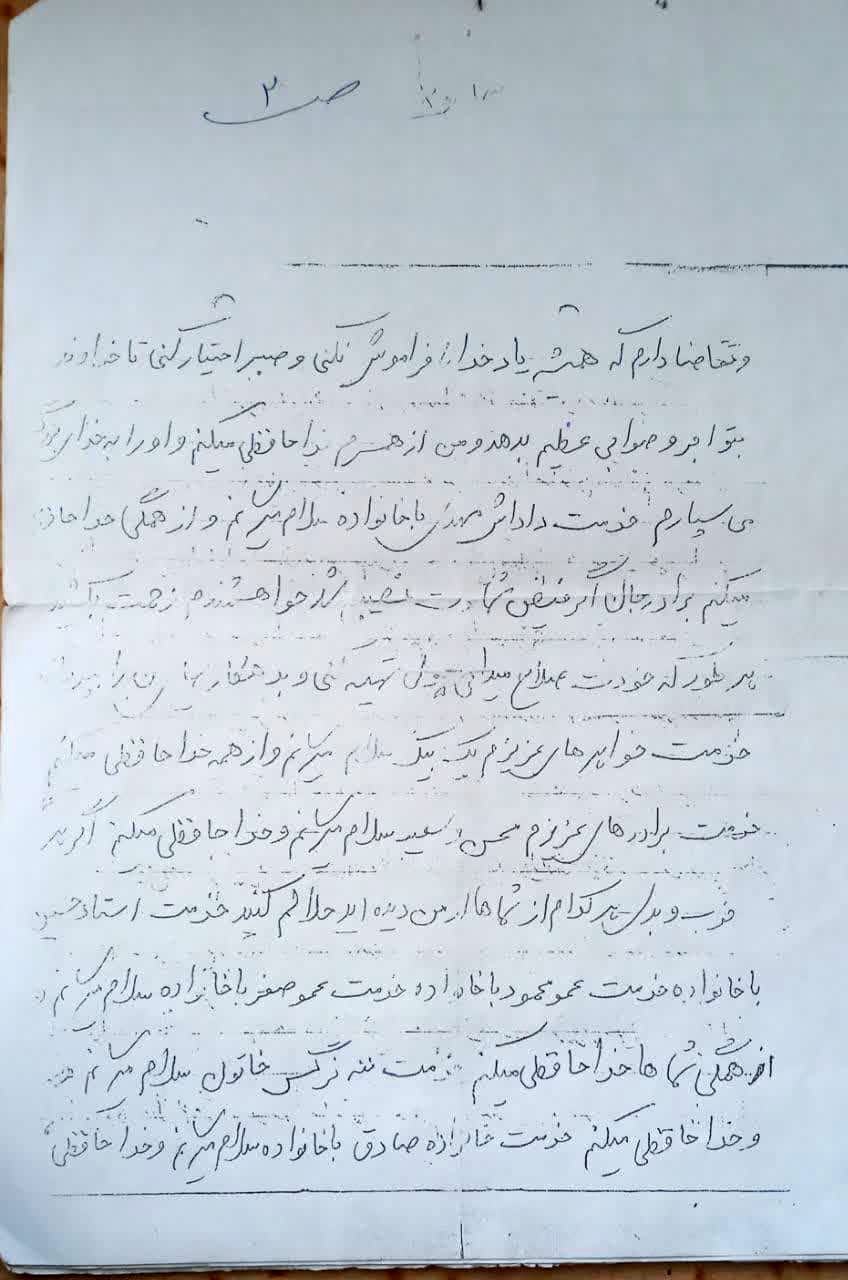 ص ۲
و تقاضا دارم که همیشه یاد خدا را فراموش نکنی و صبر اختیار کنی تا خداوند
بتو اجر و صوابی عظیم بدهد و من از همسرم خداحافظی میکنم و او را به خدای بزرگ
می سپارم خدمت داداش مهدی با خانواده سلام میرسانم و از همگی خداحافظی
میکنم برادر جان اگر فیض شهادت نصیبم شد خواهشمندم زحمت بکشید
هر طور که خودت صلاح میدانی پول تهیه کنی و بدهکاریهای من را
خدمت خواهرهای عزیزم یک بیک سلام میرسانم و از همه خداحافظی میکنم
خدمت برادرهای عزیزم محسن و سعید سلام میرسانم و خداحافظی میکنم اگر هر
خوب و بدی هر کدام از شماها از من دیده اید حلالم کنید خدمت استاد حسین
با خانواده خدمت عمو محمود با خانواده خدمت عمو صفر با خانواده سلام میرسانم و
از همگی شماها خداحافظی میکنم خدمت ننه نرگس خاتون سلام میرسانم
و خداحافظی میکنم خدمت خانواده صادق با خانواده سلام میرسانم و خداحافظی